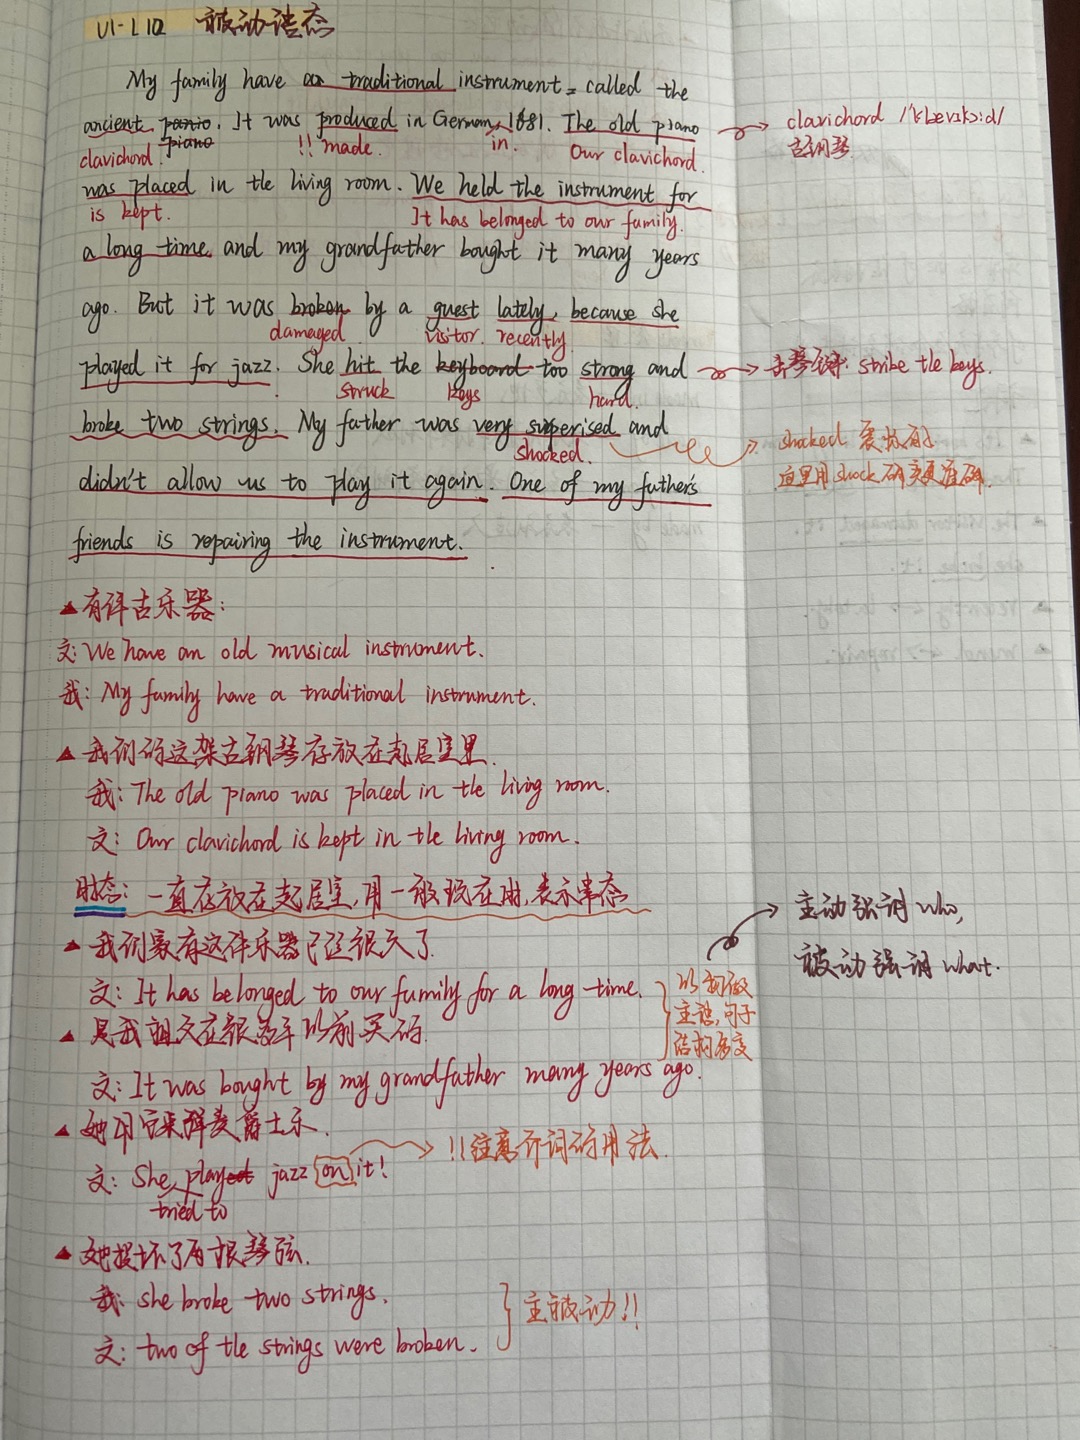 U1-L10 被动语态
My family have a traditional instrument, called the
ancient piano. It was produced in German, 1681. The old piano
clavichord. piano !! made. in. Our clavichord.
clavichord /'klævɪkɔ:d/
古钢琴
was placed in the living room. We held the instrument for
is kept. It has belonged to our family.
a long time, and my grandfather bought it many years
ago. But it was broken by a guest lately, because she
damaged visitor. recently
played it for jazz. She hit the keyboard too strong and
struck keys hard.
击琴键: strike the keys.
broke two strings. My father was very superised and
shocked.
shocked 震惊的
这里用shock 确实更准确.
didn't allow us to play it again. One of my father's
friends is repairing the instrument.
▲ 有件古乐器:
文: We have an old musical instrument.
我: My family have a traditional instrument.
▲ 我们的这架古钢琴存放在起居室里.
我: The old piano was placed in the living room.
文: Our clavichord is kept in the living room.
时态: 一直存放在起居室, 用一般现在时, 表示常态
▲ 我们家有这件乐器已经很久了
文: It has belonged to our family for a long time.
▲ 是我祖父在很多年以前买的.
文: It was bought by my grandfather many years ago.
以物做
主语, 句子
结构多变
主动强调 who,
被动强调 what.
▲ 她用它来弹奏爵士乐.
文: She played jazz on it!
tried to
!!注意介词的用法.
▲ 她损坏了两根琴弦.
我: she broke two strings.
文: two of the strings were broken.
主被动!!